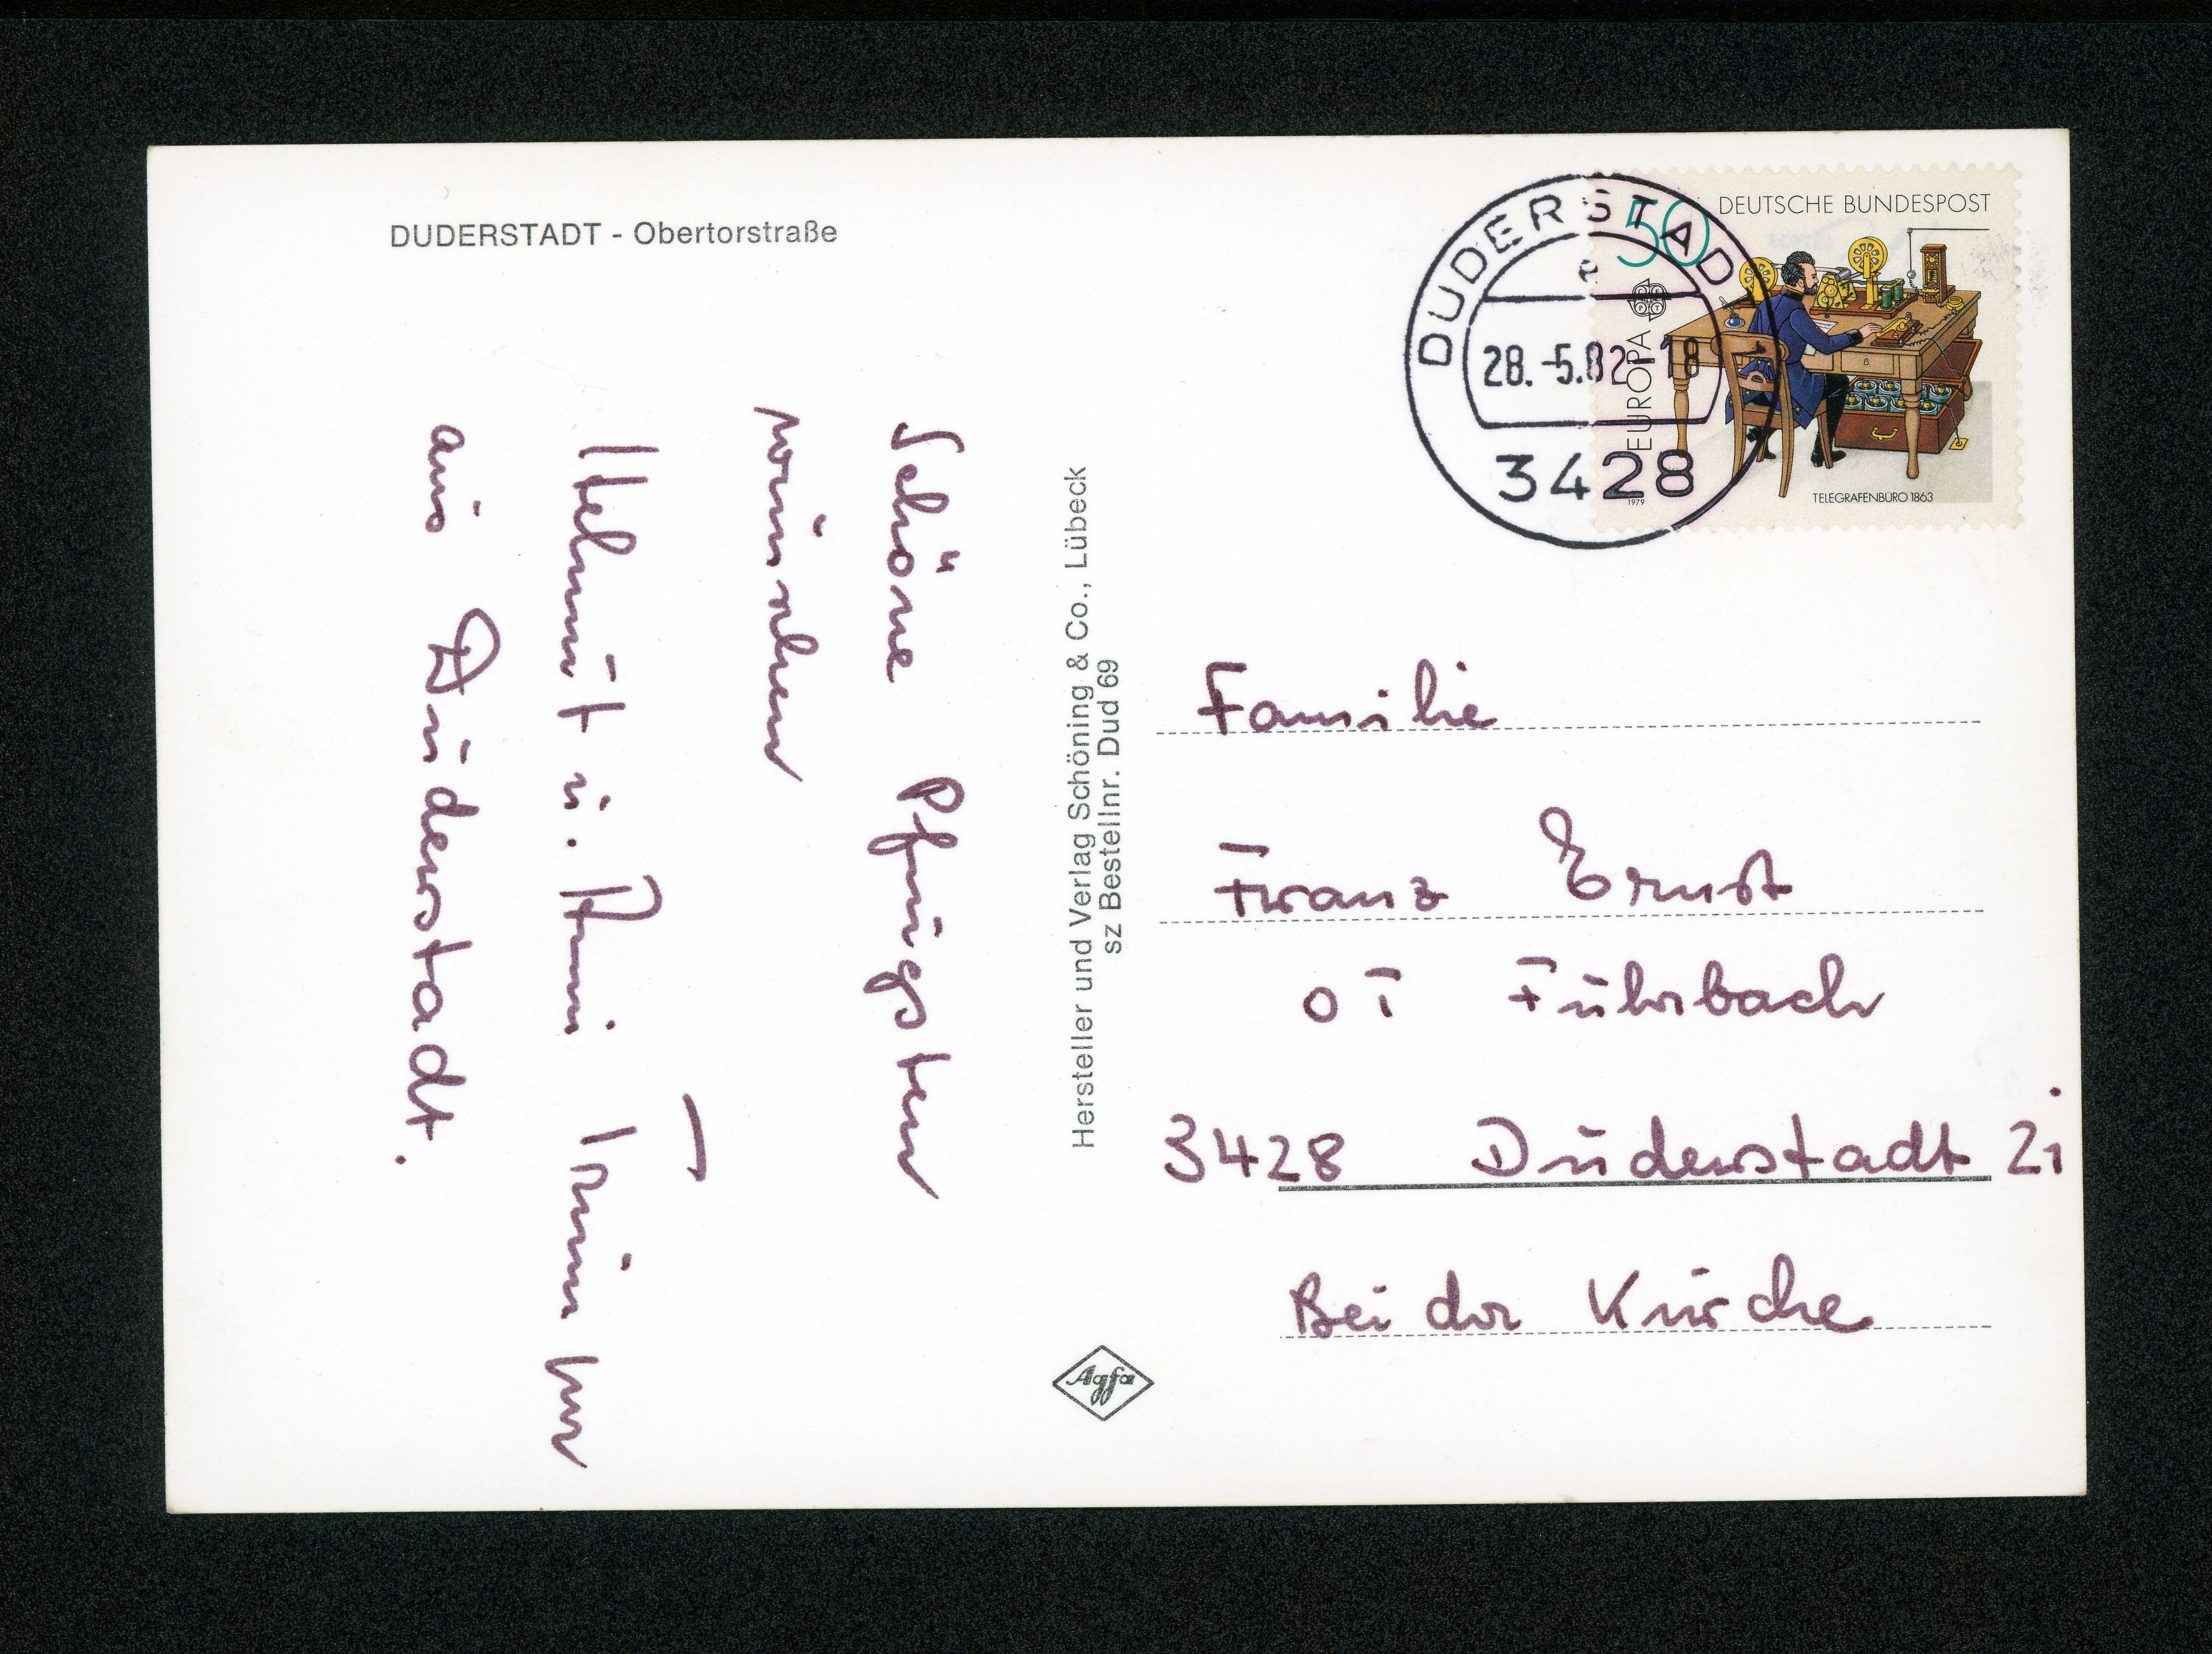 DUDERSTADT - Obertorstraße
Schöne Pfingsten
wünschen
Helmut u.
aus Duderstadt.
Hersteller und Verlag Schöning & Co., Lübeck
sz Bestellnr. Dud 69
Agfa
DUDERSTADT
e
28.-5.82-18
3428
50
DEUTSCHE BUNDESPOST
EUROPA
CEPT
1979
TELEGRAFENBÜRO 1863
Familie
Franz Ernst
OT Fuhrbach
3428 Duderstadt 21
Bei der Kirche